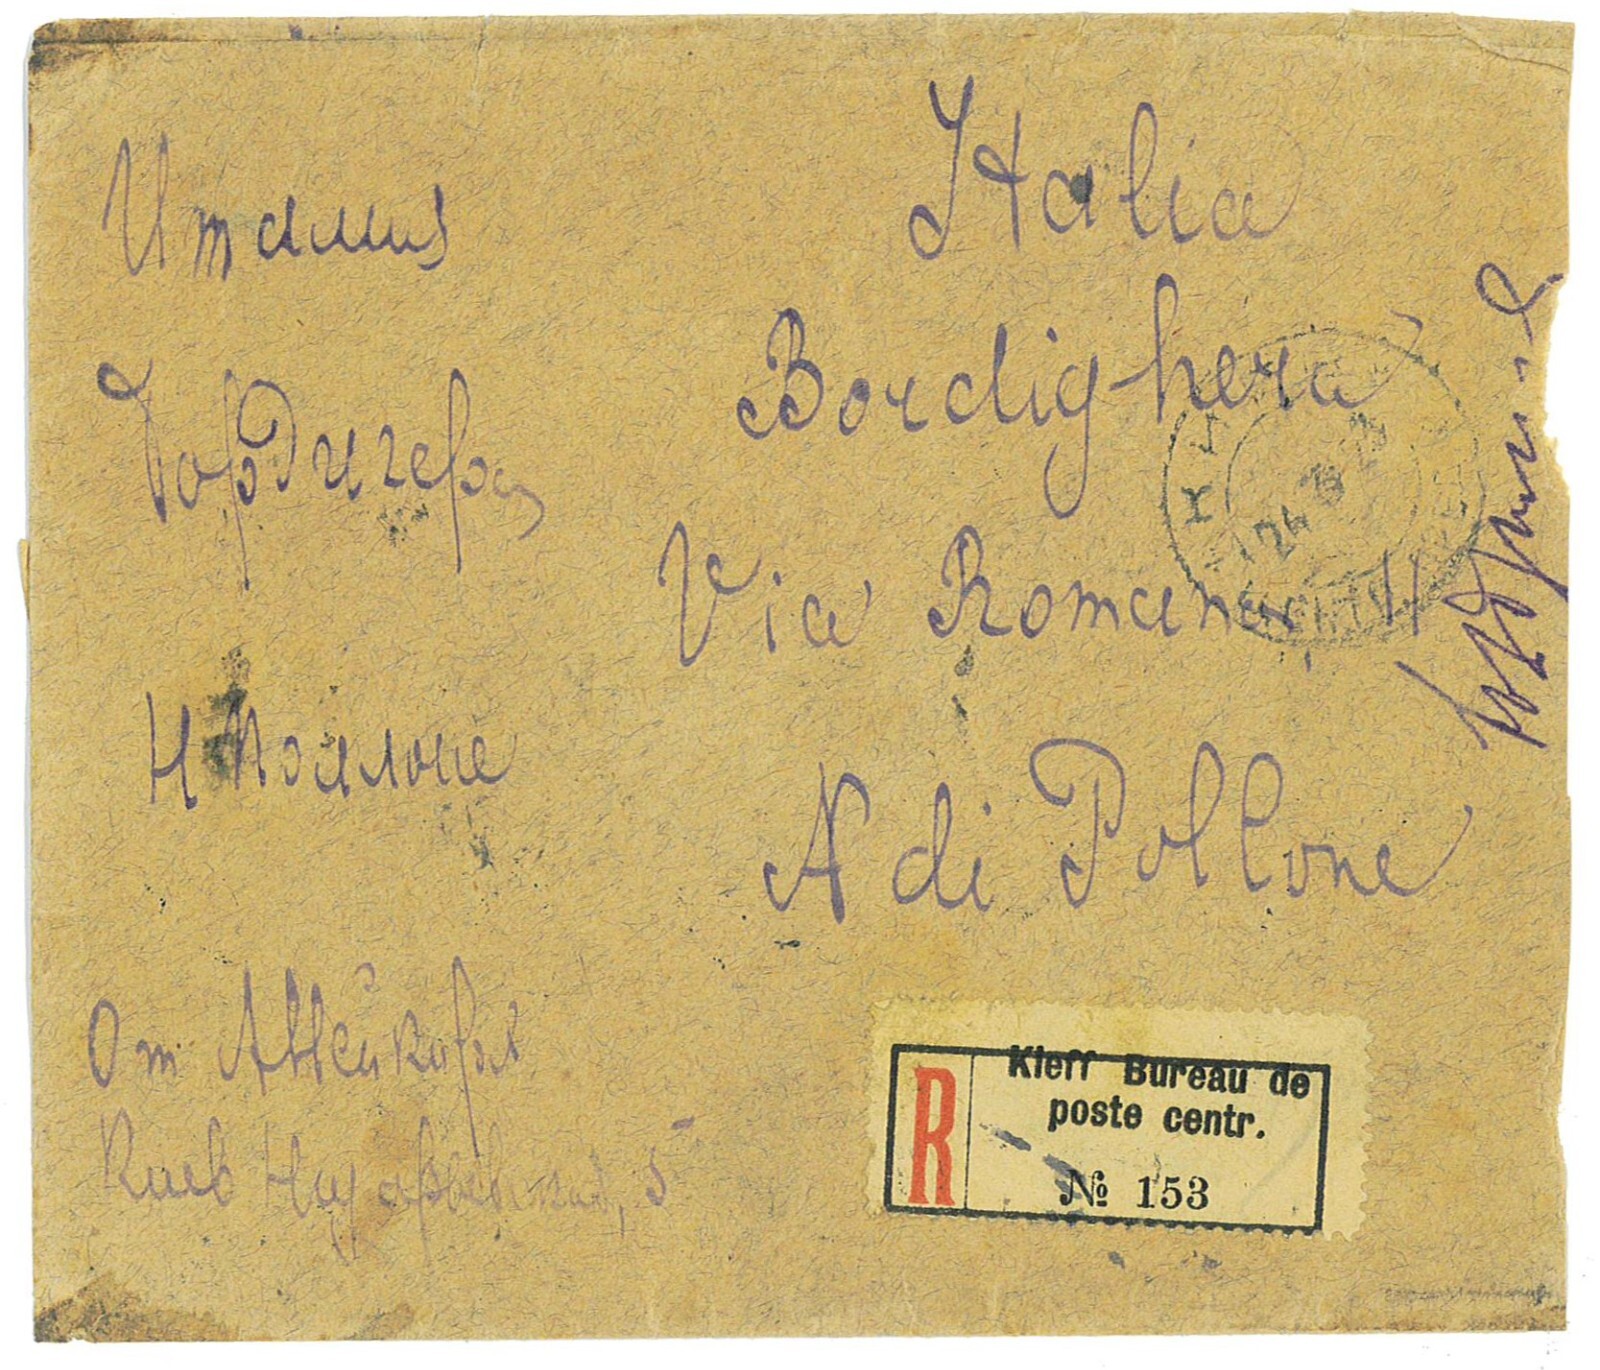 Италия
Italia
Бордигера
Bordighera
Via Romana 11
Н Поллоне
N di Pollone
От
Киев 5
R
Kieff Bureau de
poste centr.
№ 153
24